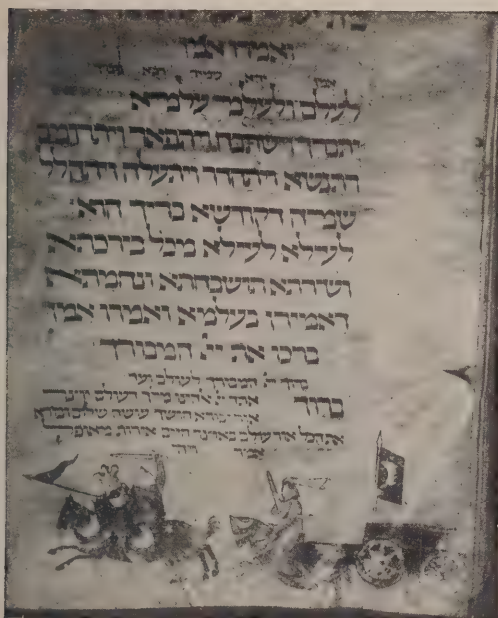 ואמרו אמן
אמן יהא שמיה רבא
לעלם ולעלמי עלמיא
יתברך וישתבח ויתפאר ויתרומם
ויתנשא ויתהדר ויתעלה ויתהלל
שמיה דקודשא בריך הוא
לעילא לעילא מכל ברכתא
ושירתא תושבחתא ונחמתא
דאמירן בעלמא ואמרו אמן
ברכו את ייי המבורך
ברוך ייי המבורך לעולם ועד
ברוך אתה ייי אלהינו מלך העולם יוצר
אור ובורא חושך עושה שלום ובורא
את הכל אור עולם באוצר חיים אורות מאופל
אמר ויהי